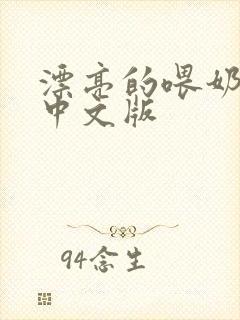 漂亮的喂奶
中文版
94念生